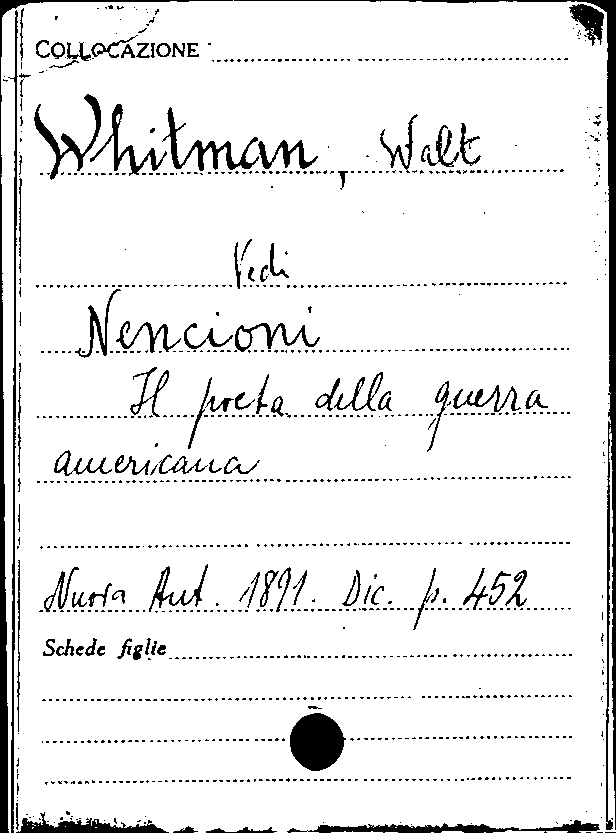 COLLOCAZIONE
Whitman, Walt
Vedi
Nencioni
Il poeta della guerra
americana
Nuova Ant. 1891. Dic. p. 452
Schede figlie